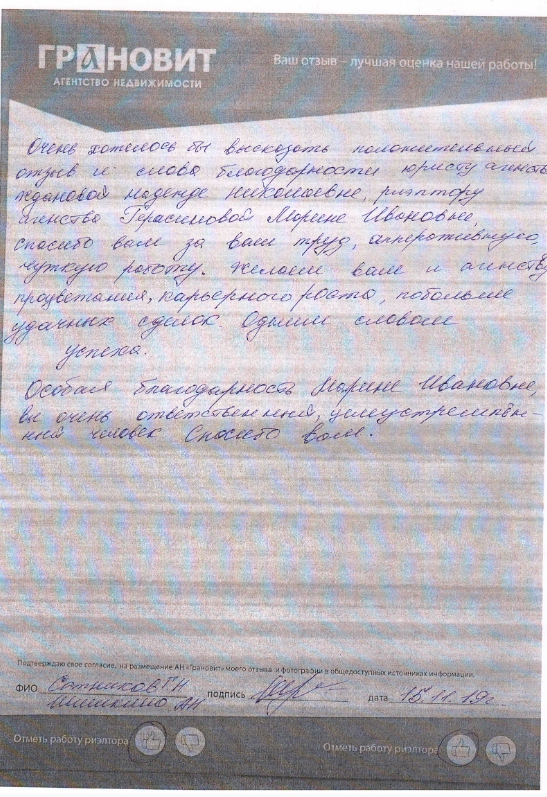 ГРАНОВИТ
АГЕНТСТВО НЕДВИЖИМОСТИ
Ваш отзыв – лучшая оценка нашей работы!
Очень хотелось бы высказать положительный
отзыв и слова благодарности юристу агенства
Ждановой Надежде Николаевне, риэлтору
агенства Герасимовой Марине Ивановне,
спасибо вам за ваш труд, апперативную,
чуткую работу. Желаем вам и агенству
процветания, карьерного роста, побольше
удачных сделок. Одним словом
успеха.
Особая благодарность Марине Ивановне,
вы очень ответственный, целеустремлён-
ный человек Спасибо вам.
Подтверждаю свое согласие, на размещение АН «Грановит» моего отзыва и фотографии в общедоступных источниках информации.
ФИО Сотников подпись дата 15.11.19г.
Отметь работу риэлтора
Отметь работу риэлтора